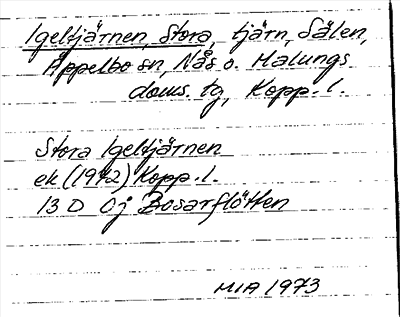 Igeltjärnen, Stora, tjärn, Sälen,
Äppelbo sn, Nås o. Malungs
doms. tg, Kopp. l.
Stora Igeltjärnen
ek (1972) Kopp. l.
13 D 0j Bosarflötten
MIA 1973